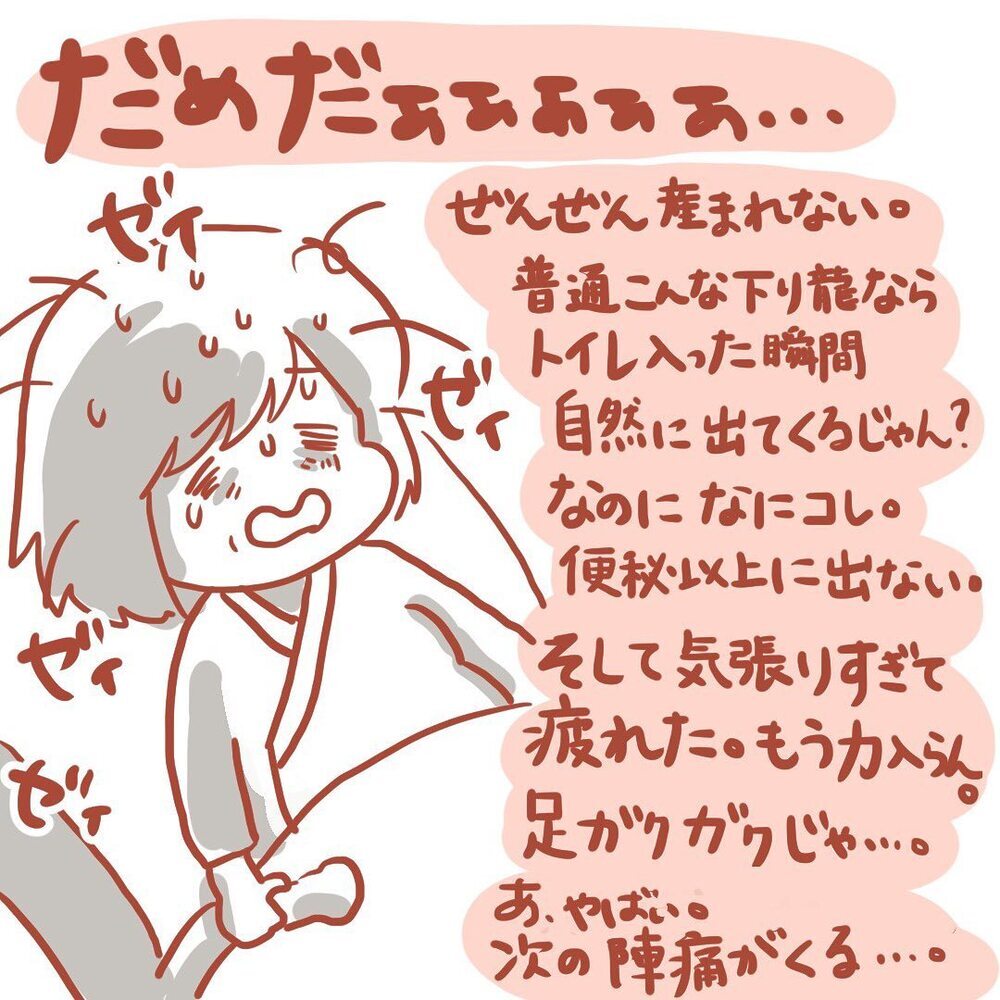 だめだぁぁぁぁぁ...
ゼィ
ぜんぜん産まれない。
普通こんな下り龍なら
トイレ入った瞬間
ゼィ
自然に出てくるじゃん?
なのになにコレ。
便秘以上に出ない。
ゼィ
そして気張りすぎて
疲れた。もう力入らん。
ゼィ
足がクガクじゃ...。
あ、やばい。
次の陣痛がくる...。